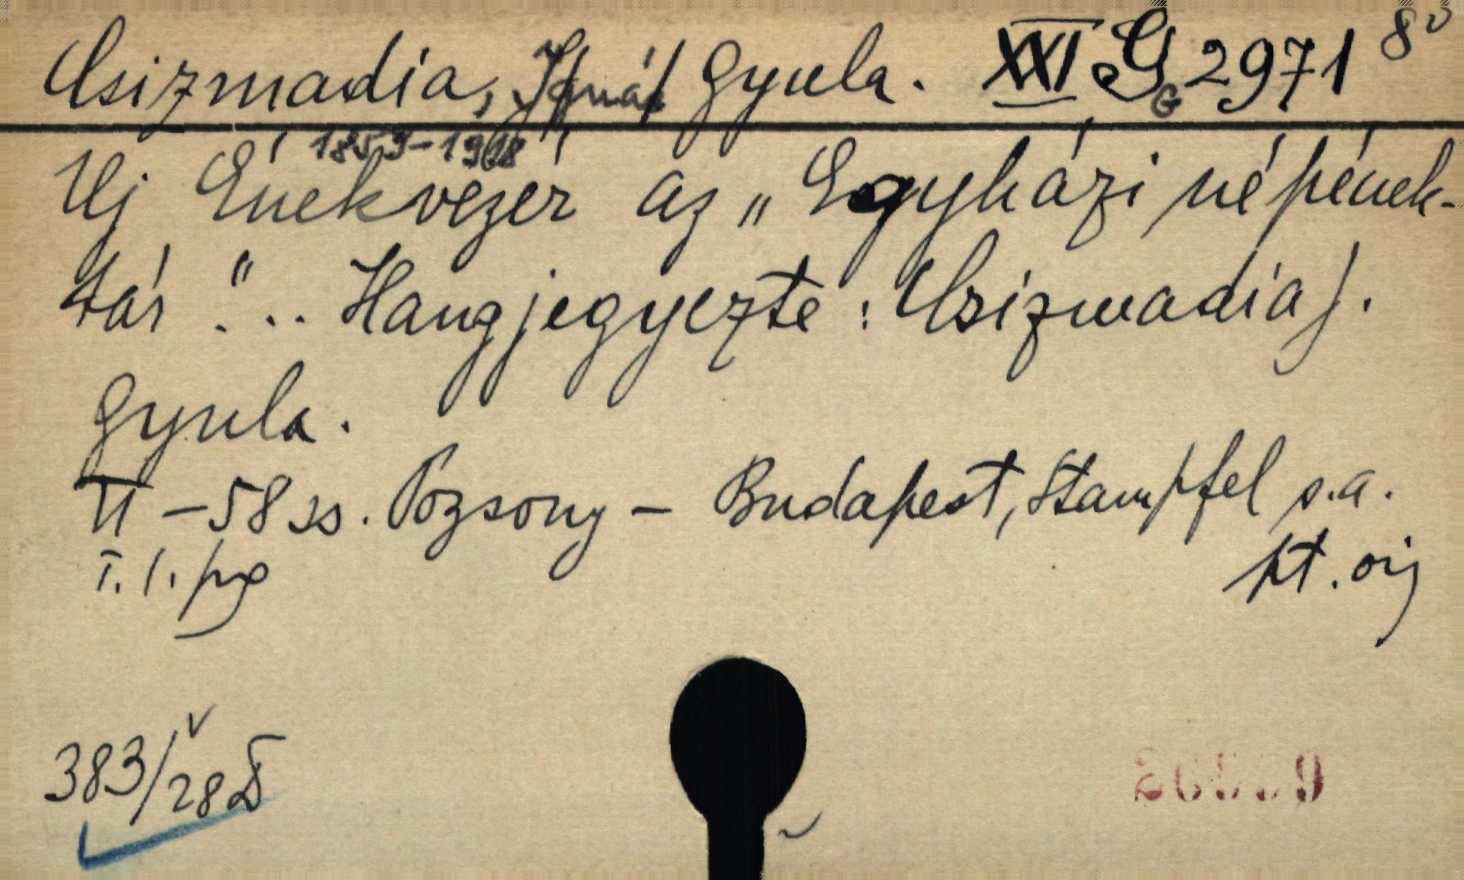 Csizmadia, /Ignác/ Gyula. XXI G 2971 8°
G
1859-1918
Uj Énekvezér az „Egyházi népének-
tár"... Hangjegyezte: Csizmadia J.
Gyula.
II - 58 ss. Pozsony - Budapest, Stampfel s.a.
T. l. pg
pt. orig
383/28